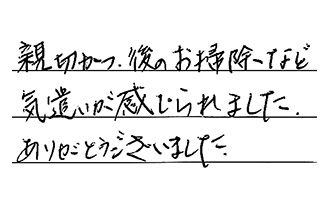 親切かつ、後のお掃除など
気遣いが感じられました。
ありがとうございました。